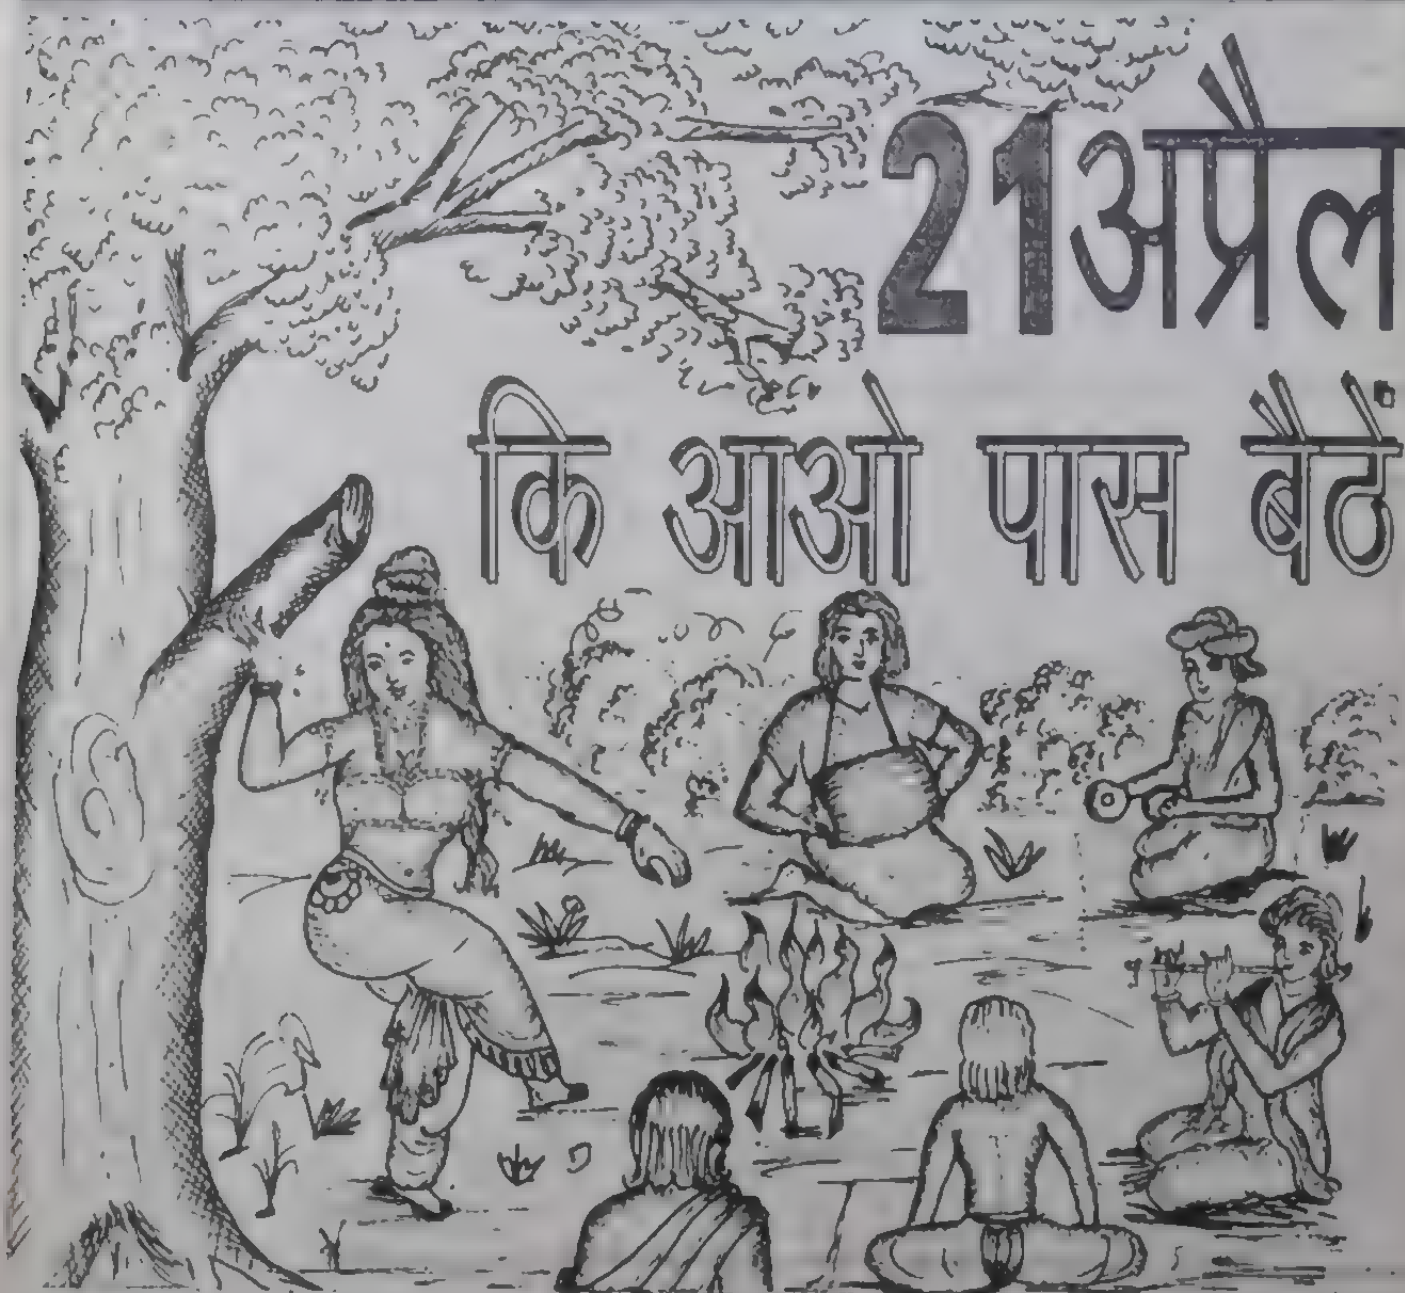 21 अप्रैल
कि आओ पास बैठें